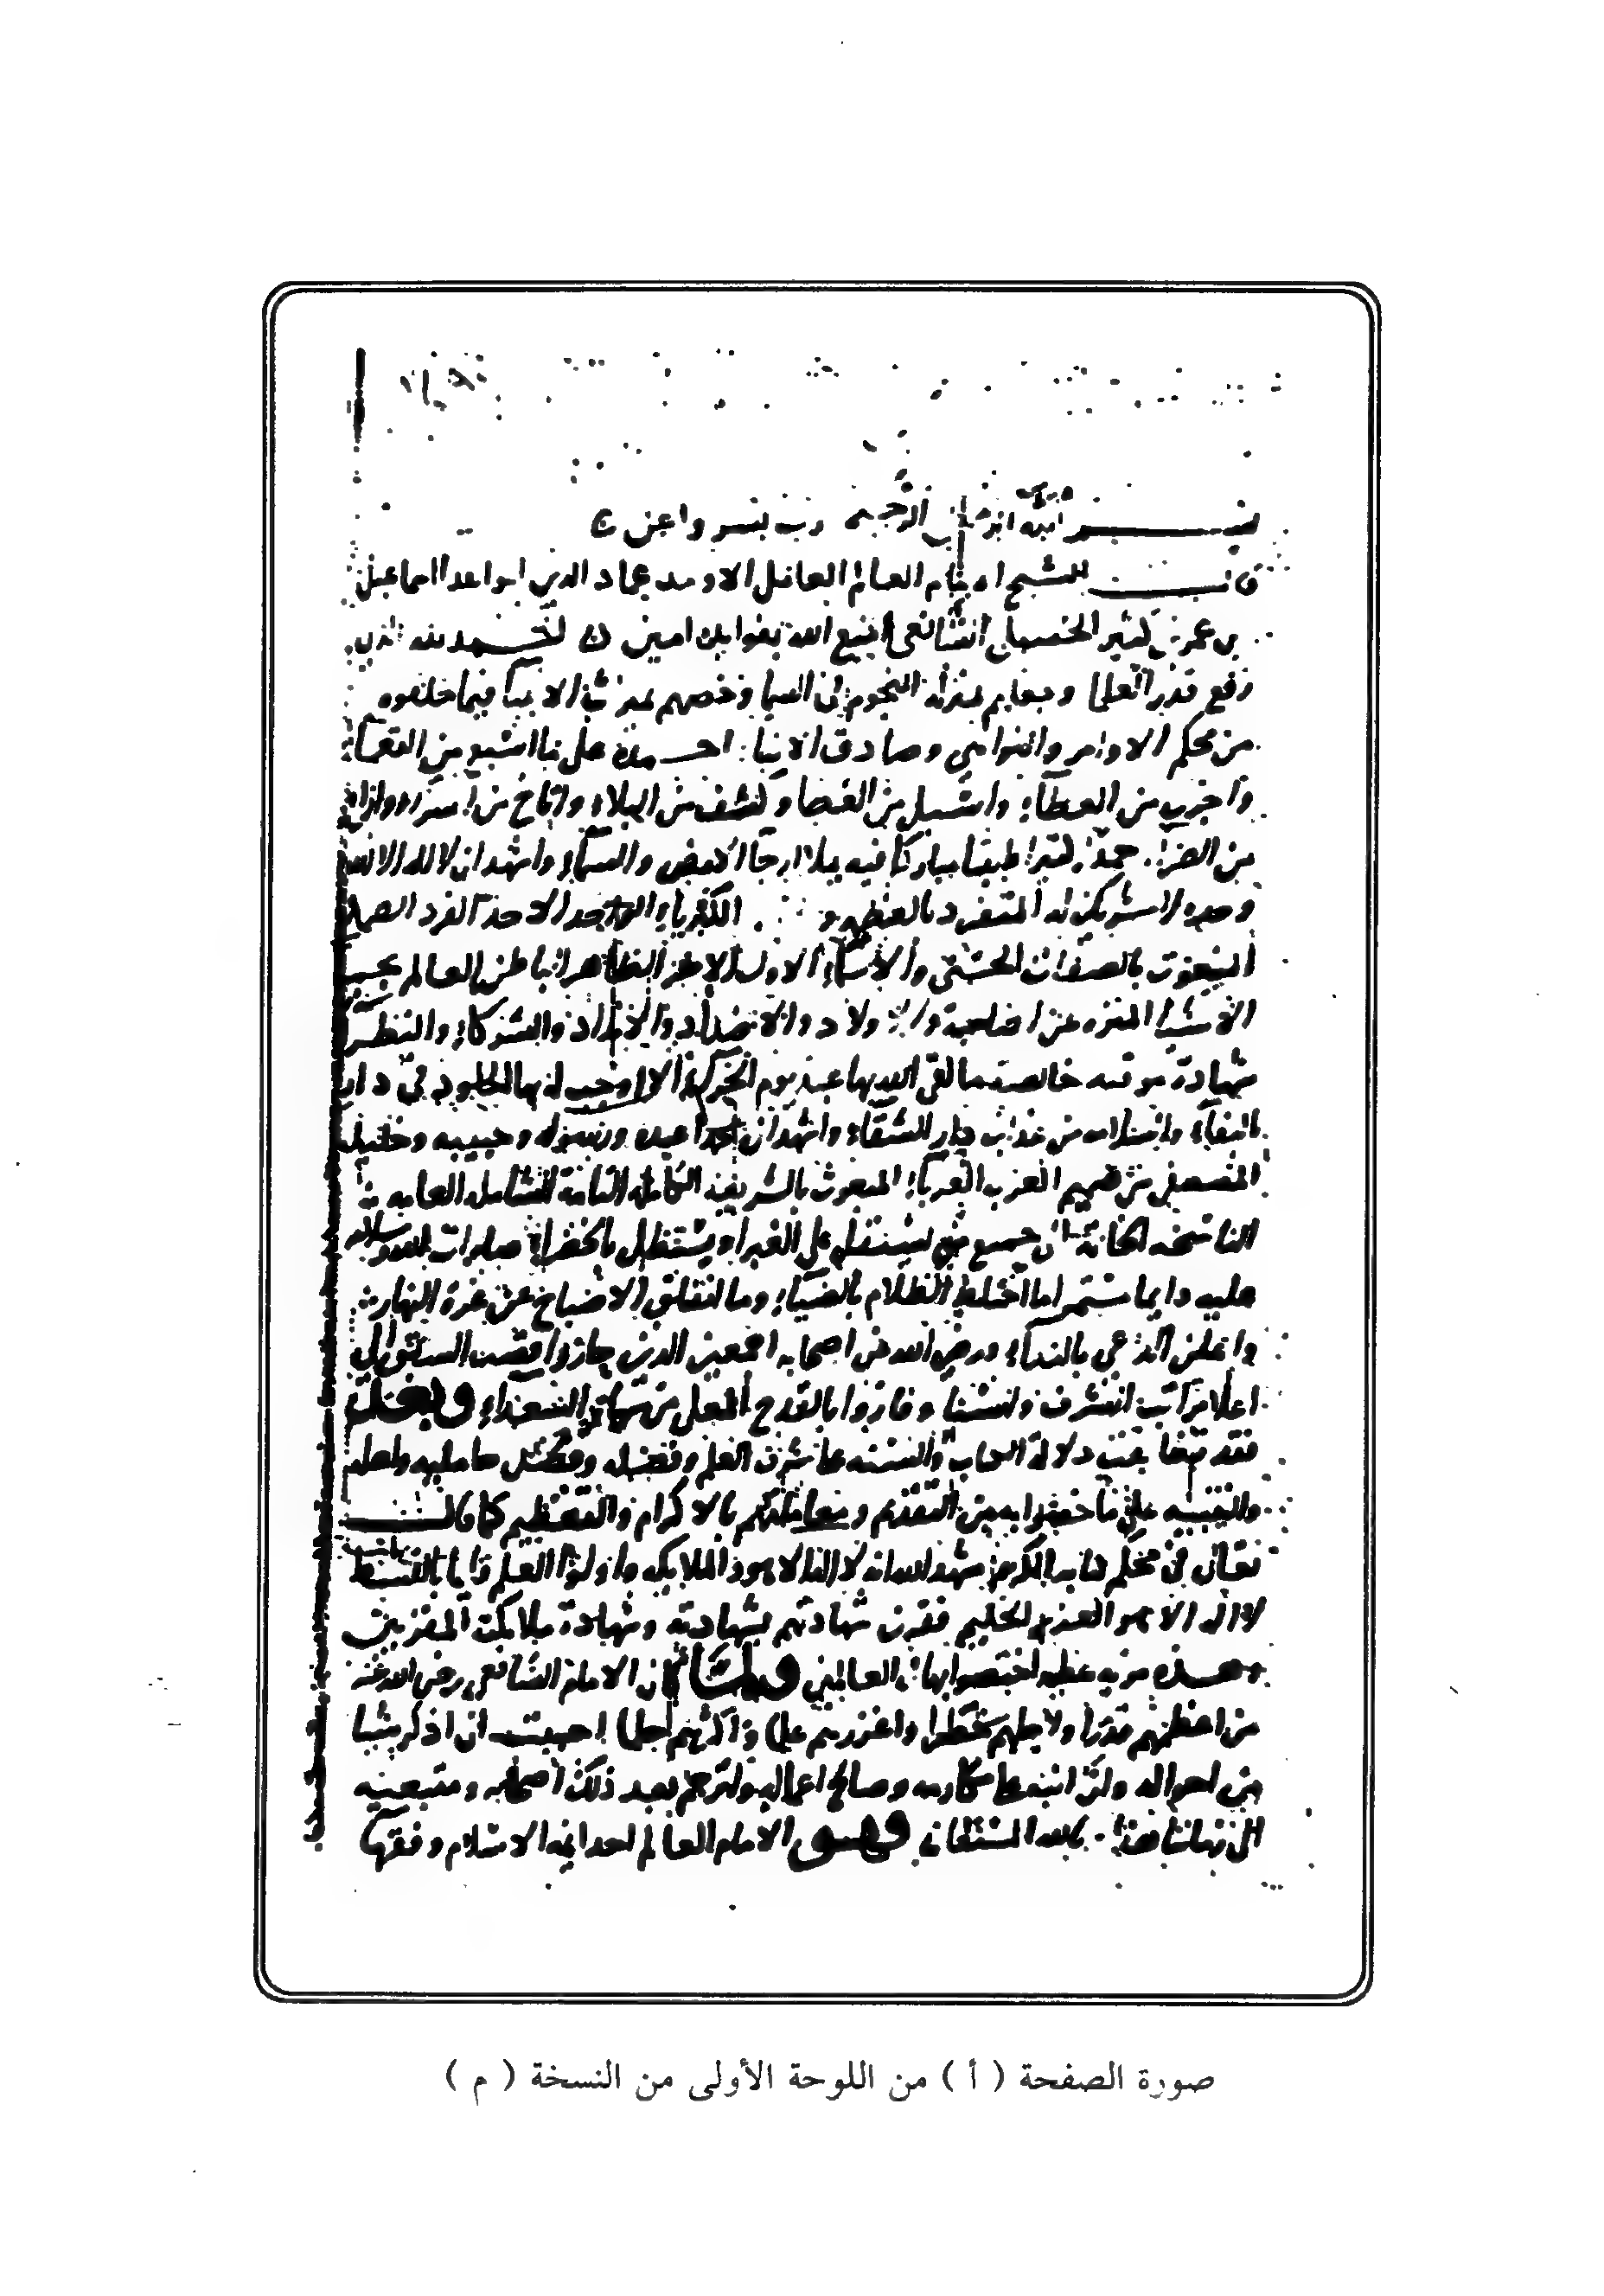 بسم الله الرحمن الرحيم رب يسر واعن
قال الشيخ الامام العالم العامل الاوحد عماد الدين ابو الفدا اسماعيل
بن عمر بن كثير الشافعي امتع الله بفوايده امين الحمد لله الذي
رفع قدر العلما وجعلهم بمنزلة النجوم في السما وخصهم بميراث الانبيا فيما خلفوه
من محكم الاوامر والنواهي وصادق الانبا احمده على ما اسبغ من النعمآ
واجزل من العطآء واسبل من الغطا وكشف من البلاء واتاح من السراء وازاح
من الضرا حمدا كثيرا طيبا مباركا فيه يملا ارجا الارض والسمآء واشهد ان لا اله الا الله
وحده لا شريك له المتفرد بالعظمة الكبرياء الواحد الاحد الفرد الصمد
المنعوت بالصفات الحسنى والاسماء الاول الاخر الظاهر الباطن العالم بجميع
الاشيا المنزه عن الصاحبة والاولاد والاضداد والانداد والشركاء والنظرا
شهادة موقنه خالصة ما لقي الله بها عبد يوم الاوجب له بها الخلود في دار
البقاء والسلامه من عذاب دار الشقاء واشهد ان محمدا عبده ورسوله وحبيبه وخليله
المصطفى من صميم العرب العرباء المبعوث بالشريعة الكاملة التامة الشاملة العامه
الناسخه الى جميع من يستقل على الغبرا ويستظل بالخضراء صلوات الله وسلامه
عليه دايما مستمرا ما اختلط الظلام بالضياء وما انفلق الاصباح عن غرة النهار
واعلن الداعي بالنداء ورضي الله عن اصحابه اجمعين الذين حازوا قصب السبق الى
اعلا مراتب الشرف والسنا وفازوا بالقدح المعلى من السعداء وبعد
فقد دلالة الكتاب والسنه على شرف العلم وفضله وفضل حامليه واهله
والتنبيه على ما خصوا به من التقدم ومعاملتهم بالاكرام والتعظيم كما قال الله
تعالى في محكم كتابه الكريم شهد الله انه لا اله الا هو والملايكه واولوا العلم قايما بالقسط
لا اله الا هو العزيز الحكيم فقرن شهادتهم بشهادته وشهادة ملايكته المقربين
وهذه مزيه عظيمه اختصوا بها في العالمين ولما كان الامام الشافعي رضي الله عنه
من اعظمهم قدرا واجلهم خطرا واغزرهم علما احببت ان اذكر شيا
من احواله وان انبه على مكارمه وصالح اعماله واترجم بعد ذلك اصحابه ومتبعيه
الى زماننا هذا بالله المستعان وهو الامام العالم احد ايمه الاسلام وفقها
صورة الصفحة ( أ ) من اللوحة الأولى من النسخة ( م )